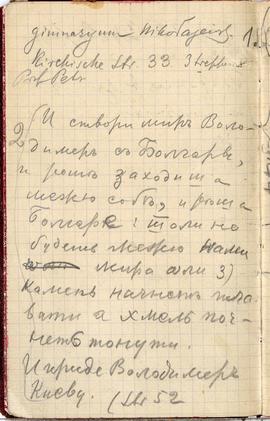 gimnazyum Nikołajewsk. 1.
Kirchische Str. 33 3 Treppen
Prof Petr
2 И створи миръ Воло-
димеръ съ Болгары,
и ротѣ заходиша
межю собѣ, и рѣша
Болгаре: толи не
будеть межю нами
мира оли 3)
камень начнеть пла-
вати а хмель поч-
неть тонути.
И приде Володимеръ
Киеву. (Str 52